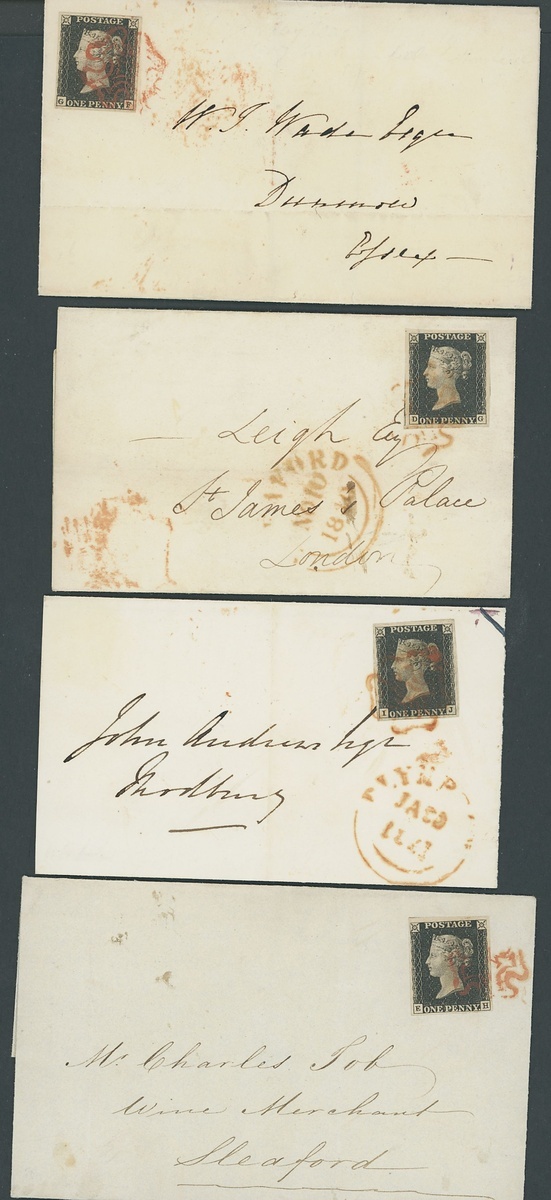 POSTAGE
G ONE PENNY F
W. J. Wade Esqre
Dunmow
Essex
POSTAGE
D ONE PENNY G
Leigh Esq
St James's Palace
London
10
18
POSTAGE
I ONE PENNY J
John Andrews Esqr
Modbury
PLYMP
JA 29
POSTAGE
E ONE PENNY H
Mr Charles Job
Wine Merchant
Sleaford